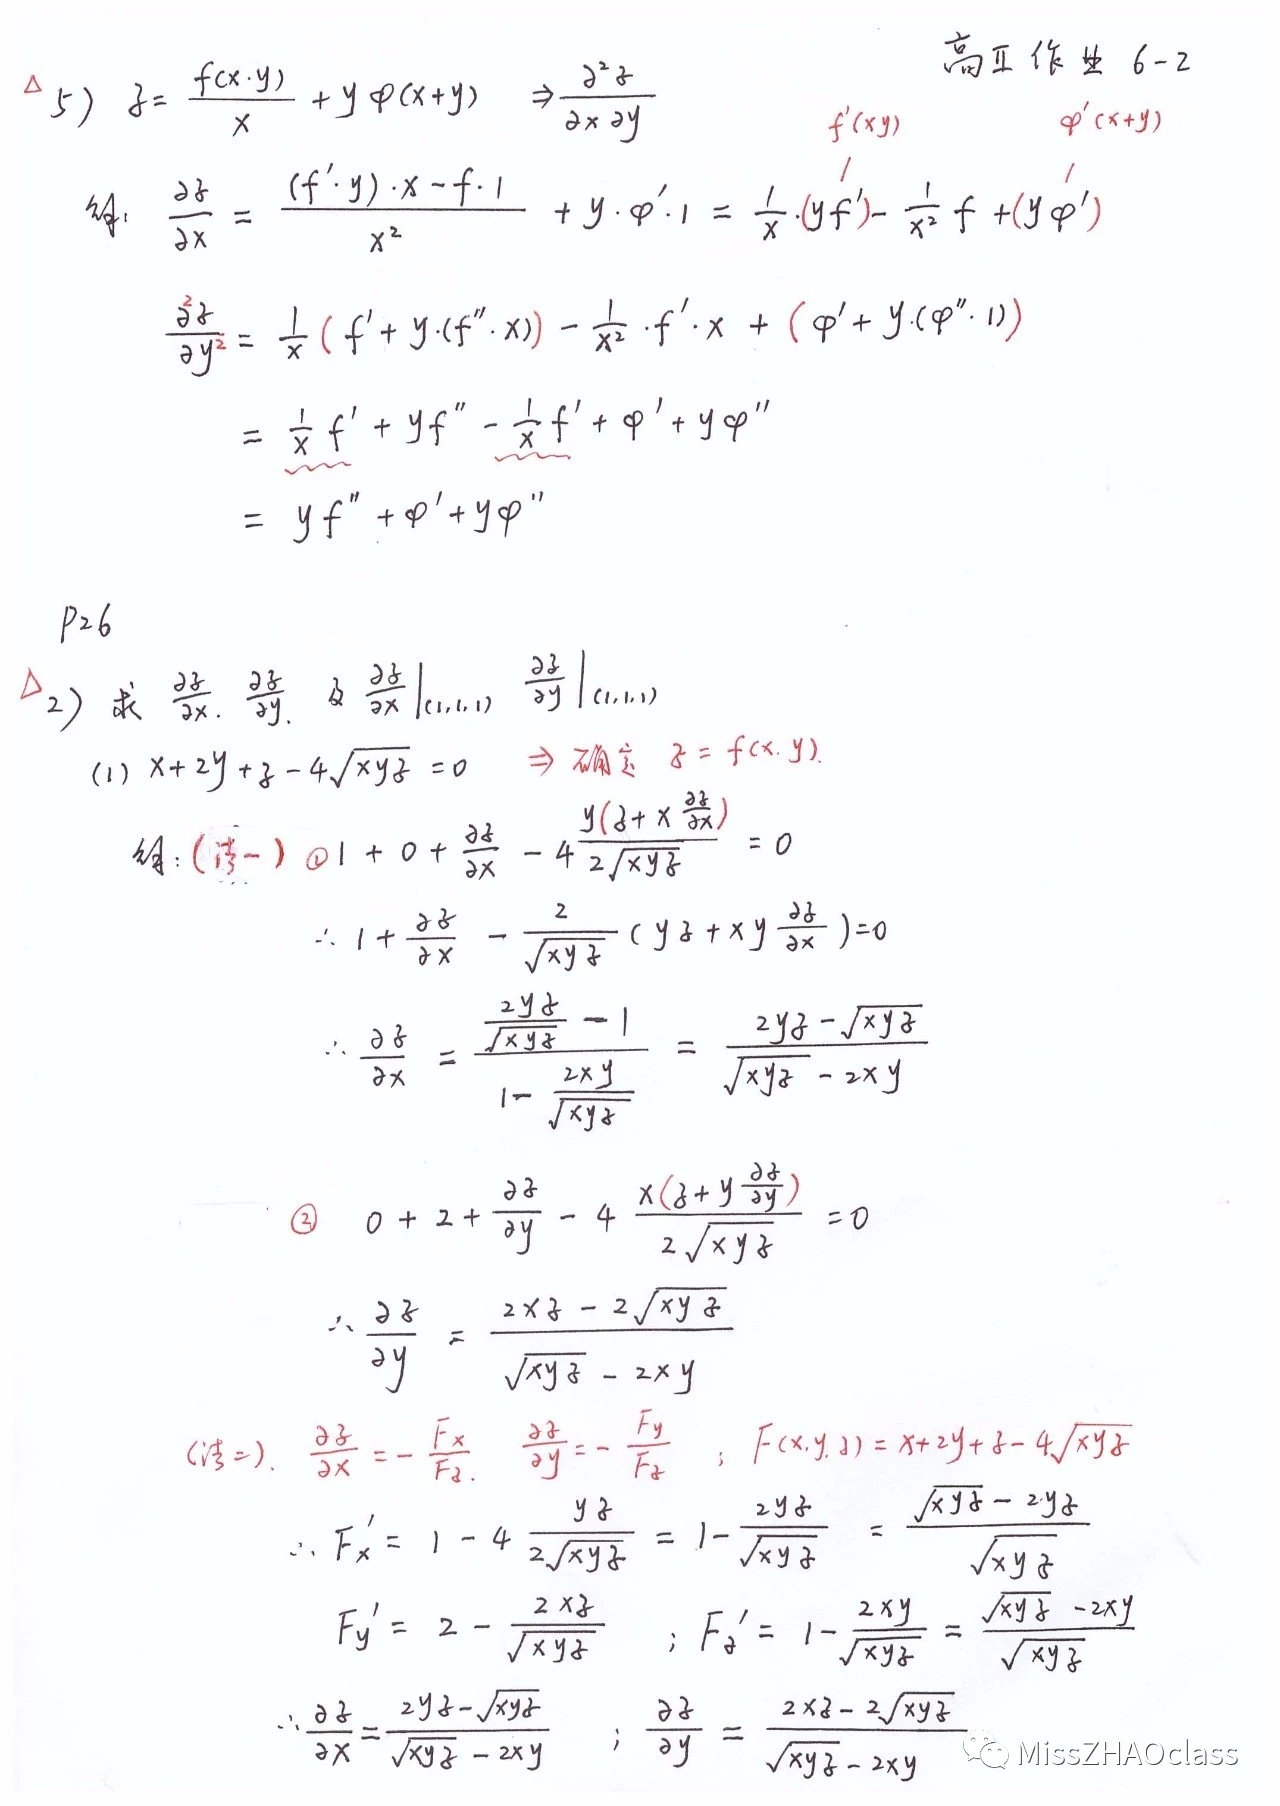 高Ⅱ 作业 6-2
△ 5) z = f(x·y)/x + yφ(x+y) ⇒ ∂²z/∂x∂y
f'(xy) φ'(x+y)
解: ∂z/∂x = ((f'·y)·x - f·1)/x² + y·φ'·1 = 1/x·(yf') - 1/x² f + (yφ')
∂²z/∂y² = 1/x (f' + y·(f''·x)) - 1/x²·f'·x + (φ' + y·(φ''·1))
= 1/x f' + yf'' - 1/x f' + φ' + yφ''
= yf'' + φ' + yφ''
P26
△ 2) 求 ∂z/∂x. ∂z/∂y. 及 ∂z/∂x|(1,1,1) ∂z/∂y|(1,1,1)
(1) x+2y+z-4√xyz = 0 ⇒ 确定 z = f(x.y).
解: (法一) ① 1 + 0 + ∂z/∂x - 4 y(z + x ∂z/∂x)/2√xyz = 0
∴ 1 + ∂z/∂x - 2/√xyz (yz + xy ∂z/∂x) = 0
∴ ∂z/∂x = (2yz/√xyz - 1)/(1 - 2xy/√xyz) = (2yz - √xyz)/(√xyz - 2xy)
② 0 + 2 + ∂z/∂y - 4 x(z + y ∂z/∂y)/2√xyz = 0
∴ ∂z/∂y = (2xz - 2√xyz)/(√xyz - 2xy)
(法二). ∂z/∂x = - Fx/Fz. ∂z/∂y = - Fy/Fz ; F(x.y.z) = x+2y+z-4√xyz
∴ Fx' = 1 - 4 yz/2√xyz = 1 - 2yz/√xyz = (√xyz - 2yz)/√xyz
Fy' = 2 - 2xz/√xyz ; Fz' = 1 - 2xy/√xyz = (√xyz - 2xy)/√xyz
∴ ∂z/∂x = (2yz - √xyz)/(√xyz - 2xy) ; ∂z/∂y = (2xz - 2√xyz)/(√xyz - 2xy)
MissZHAOclass